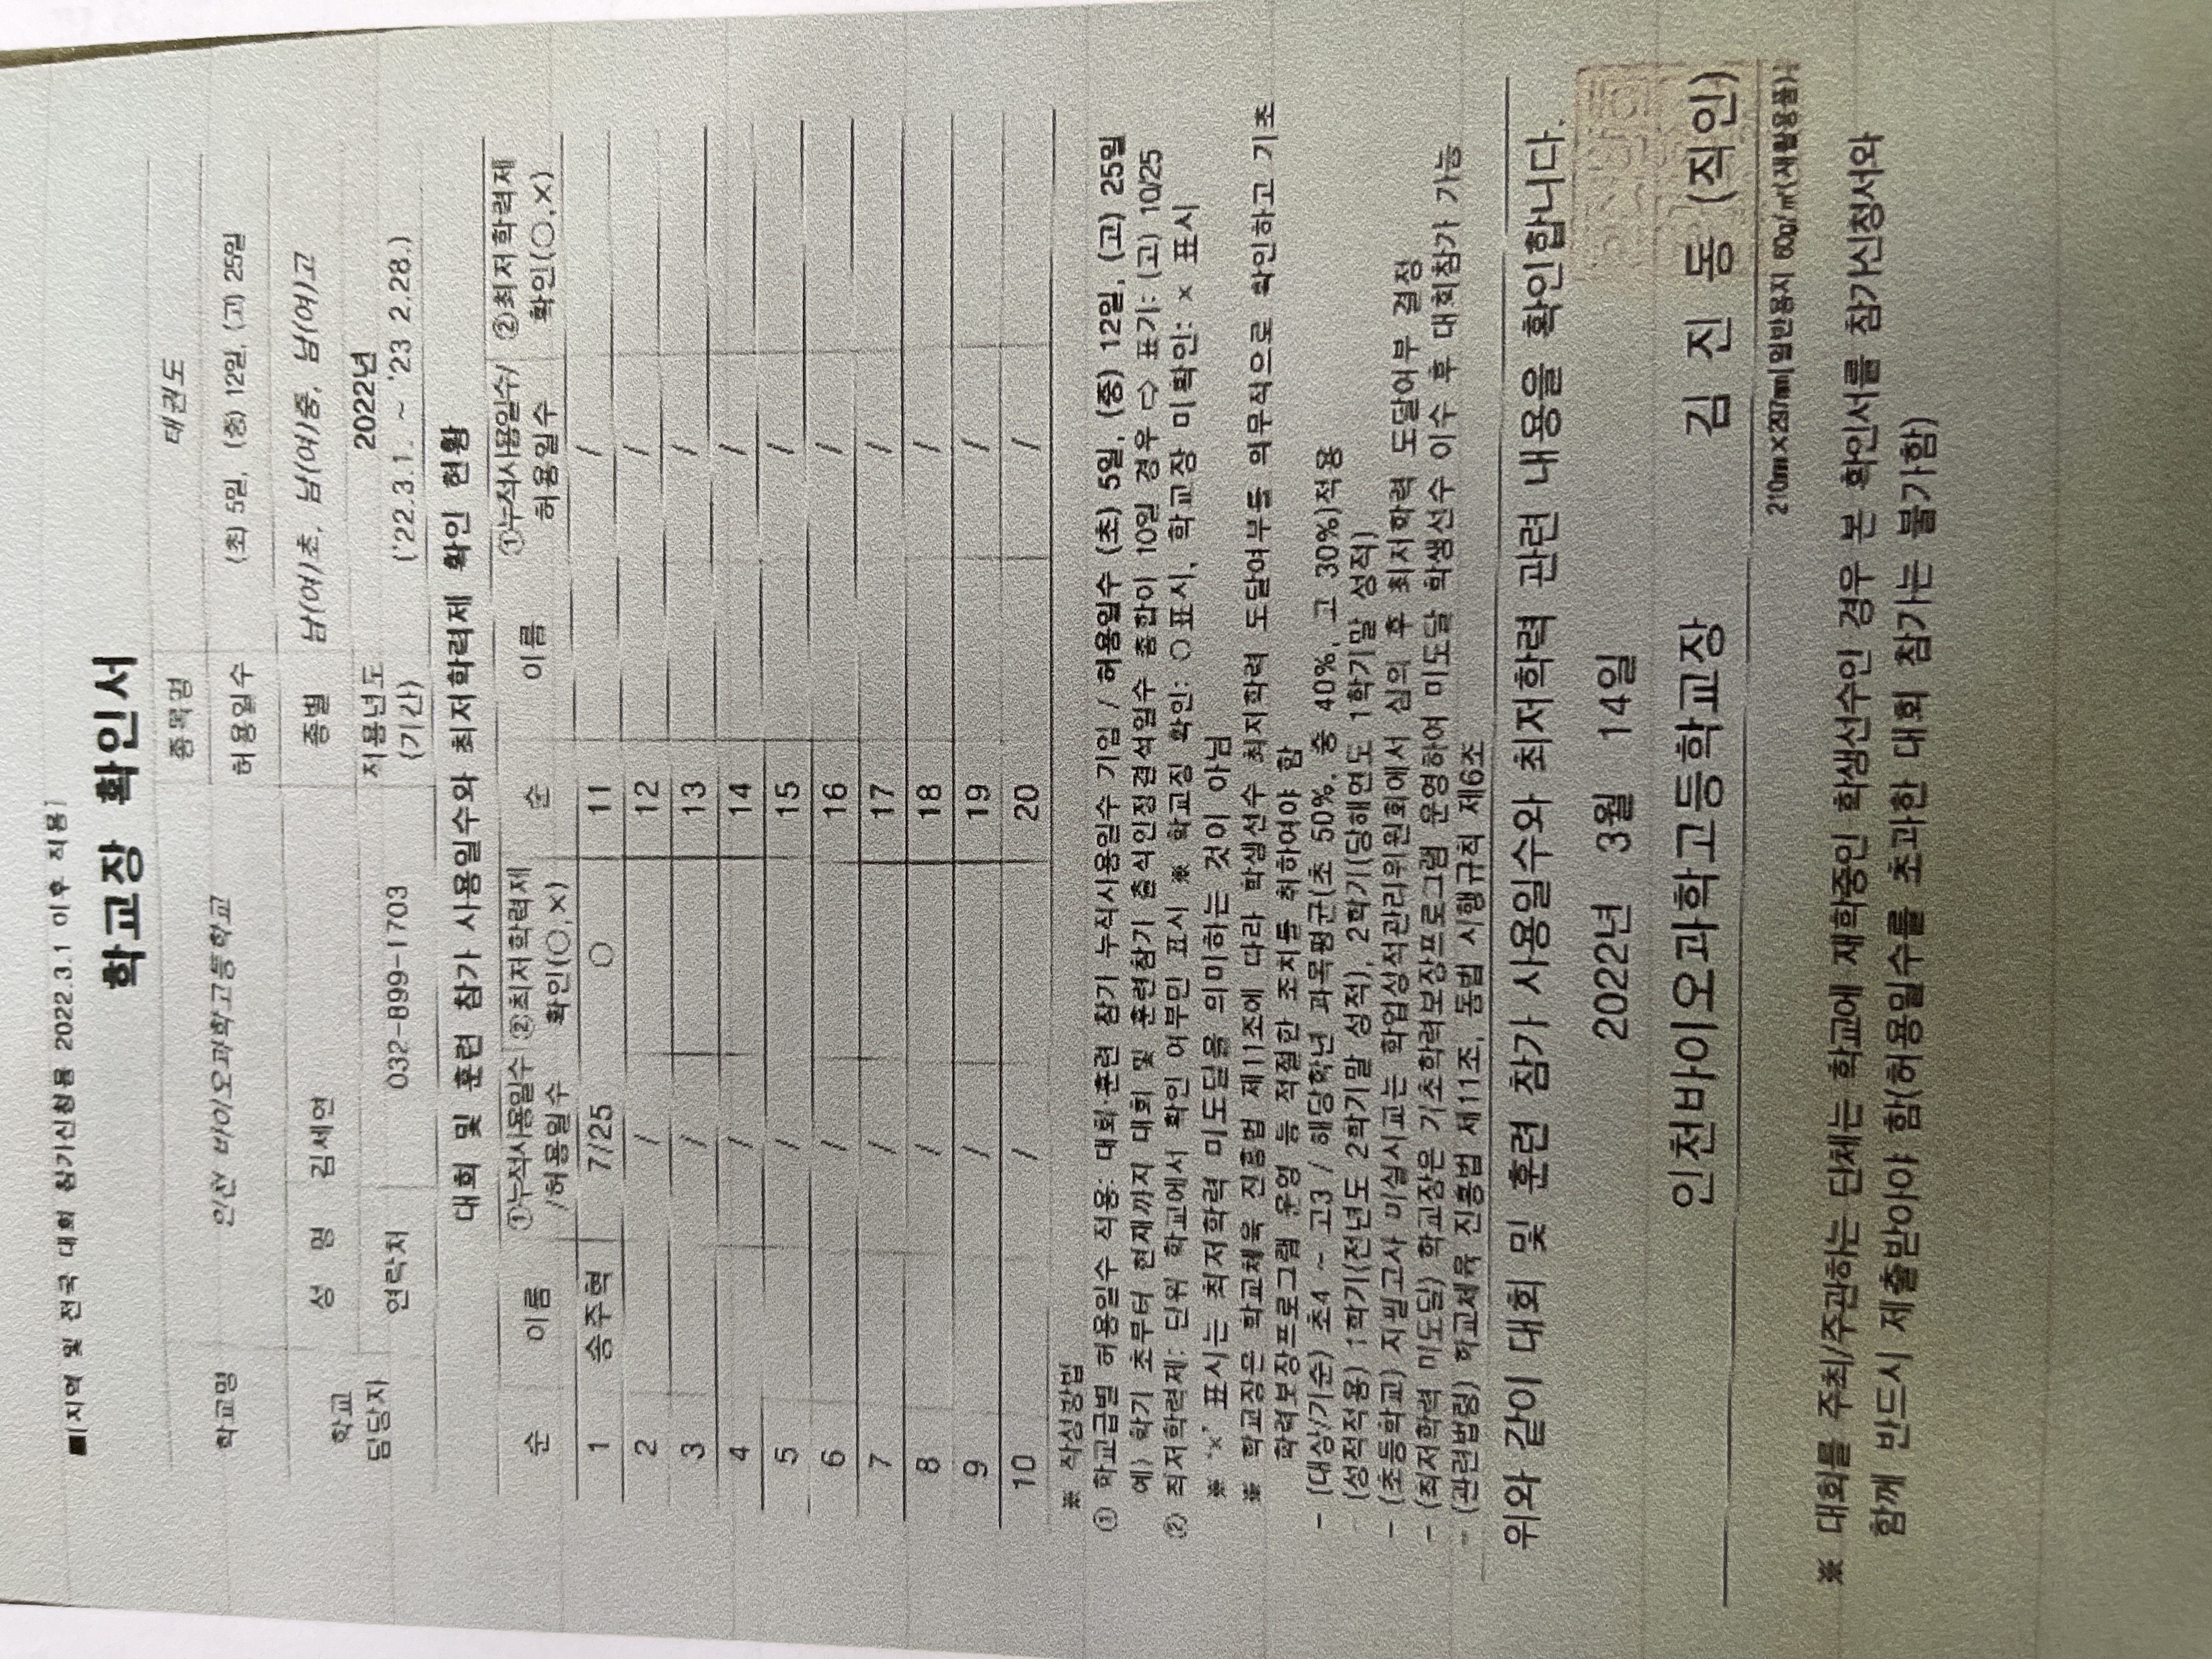 ■[지역 및 전국 대회 참가신청용 2022.3.1 이후 적용]
학교장 확인서
학교명 인천 바이오과학고등학교 종목명 태권도
허용일수 (초) 5일, (중) 12일, (고) 25일
학교 담당자 성 명 김세연 종별 남(여)초, 남(여)중, 남(여)고
연락처 032-899-1703 적용년도 (기간) 2022년 ('22.3.1. ~ '23 2.28.)
대회 및 훈련 참가 사용일수와 최저학력제 확인 현황
순 이름 ①누적사용일수 /허용일수 ②최저학력제 확인(○,×) 순 이름 ①누적사용일수/ 허용일수 ②최저학력제 확인(○,×)
1 송주혁 7/25 ○ 11 /
2 / 12 /
3 / 13 /
4 / 14 /
5 / 15 /
6 / 16 /
7 / 17 /
8 / 18 /
9 / 19 /
10 / 20 /
※ 작성방법
① 학교급별 허용일수 적용: 대회·훈련 참가 누적사용일수 기입 / 허용일수 (초) 5일, (중) 12일, (고) 25일
예) 학기 초부터 현재까지 대회 및 훈련참가 출석인정결석일수 총합이 10일 경우 ⇨ 표기: (고) 10/25
② 최저학력제: 단위 학교에서 확인 여부만 표시 ※ 학교장 확인: ○표시, 학교장 미확인: × 표시
※ '×' 표시는 최저학력 미도달을 의미하는 것이 아님
※ 학교장은 학교체육 진흥법 제11조에 따라 학생선수 최저학력 도달여부를 의무적으로 확인하고 기초
학력보장프로그램 운영 등 적절한 조치를 취하여야 함
- (대상/기준) 초4 ~ 고3 / 해당학년 과목평균(초 50%, 중 40%, 고 30%)적용
(성적적용) 1학기(전년도 2학기말 성적), 2학기(당해연도 1학기말 성적)
- (초등학교) 지필고사 미실시교는 학업성적관리위원회에서 심의 후 최저학력 도달여부 결정
- (최저학력 미도달) 학교장은 기초학력보장프로그램 운영하여 미도달 학생선수 이수 후 대회참가 가능
- (관련법령) 학교체육 진흥법 제11조, 동법 시행규칙 제6조
위와 같이 대회 및 훈련 참가 사용일수와 최저학력 관련 내용을 확인합니다.
2022년 3월 14일
인천바이오과학고등학교장 김 진 동 (직인)
210mm×297mm[일반용지 60g/㎡(재활용품)]
※ 대회를 주최/주관하는 단체는 학교에 재학중인 학생선수인 경우 본 확인서를 참가신청서와
함께 반드시 제출받아야 함(허용일수를 초과한 대회 참가는 불가함)